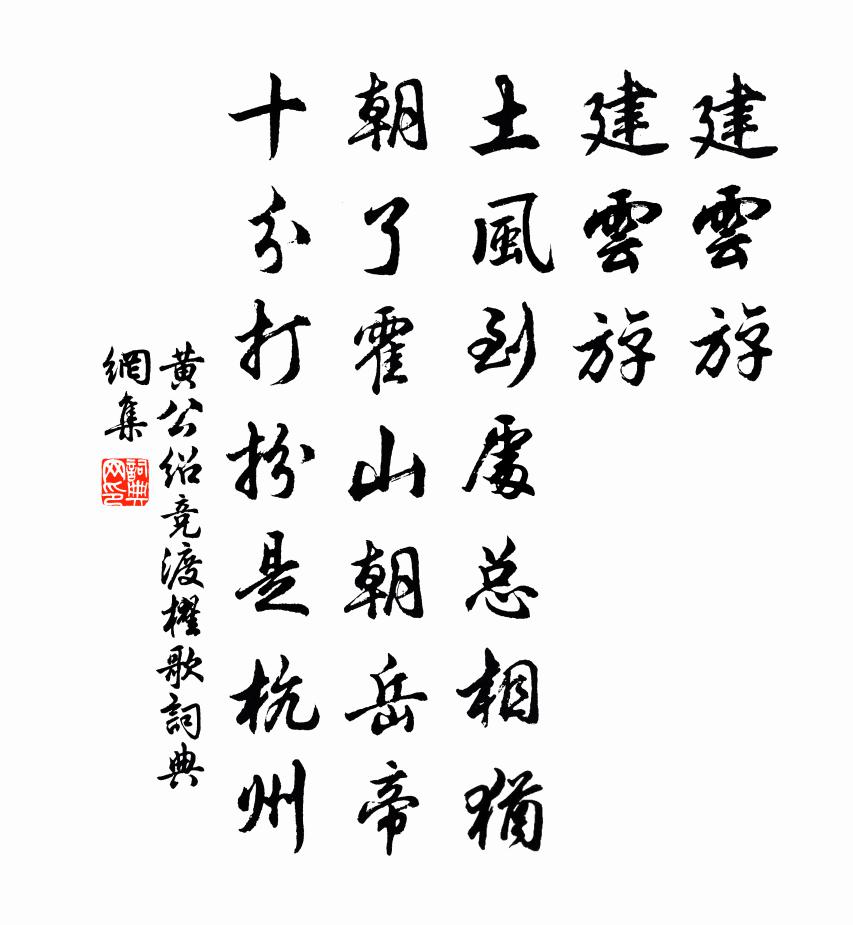 建雲斿
建雲斿
土風到處总相猶
朝了霍山朝岳帝
十分打扮是杭州
黄公绍竞渡櫂歌詞典
網集
詞典网印